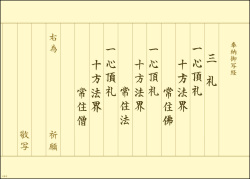 奉納御写経
三礼
一心頂礼
十方法界
常住佛
一心頂礼
十方法界
常住法
一心頂礼
十方法界
常住僧
右為
祈願
敬写